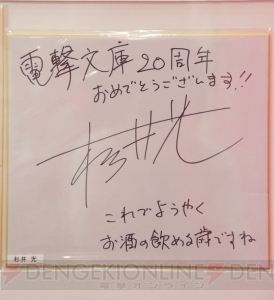 電撃文庫20周年
おめでとうございます!!
杉井光
これでようやく
お酒の飲める歳ですね
杉井 光
DENGEKI ONLINE
電撃オンライン